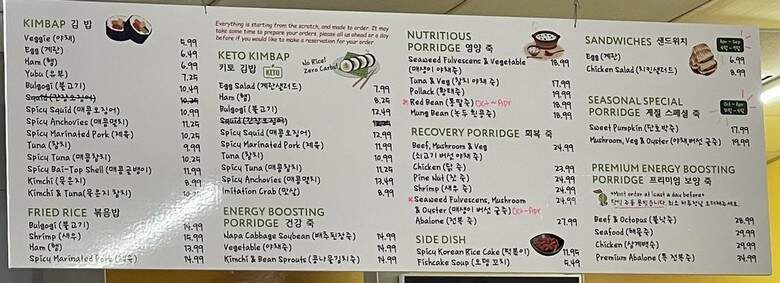 KIMBAP 김 밥
Veggie (야채) 5.99
Egg (계란) 6.49
Ham (햄) 6.99
Yubu (유부) 7.25
Bulgogi (불고기) 10.49
Squid (간장오징어) 10.25
Spicy Squid (매콤오징어) 10.99
Spicy Anchovies (매콤멸치) 11.25
Spicy Marinated Pork (제육) 10.25
Tuna (참치) 9.99
Spicy Tuna (매콤참치) 10.25
Spicy Bai-Top Shell (매콤골뱅이) 11.99
Kimchi (묵은지) 8.99
Kimchi & Tuna (묵은지 참치)
FRIED RICE 볶음밥
Bulgogi (불고기) 14.99
Shrimp (새우) 15.99
Ham (햄) 13.99
Spicy Marinated Pork 14.99
Everything is starting from the scratch, and made to order. It may
take some time to prepare your orders. please all us ahead or a day
before if you would like to make a reservation for your order
KETO KIMBAP
키토 김밥 KETO
No Rice!
Zero Carbs!
Egg Salad (계란샐러드) 7.99
Ham (햄) 8.25
Bulgogi (불고기) 12.49
Squid (간장오징어)
Spicy Squid (매콤오징어) 12.99
Spicy Marinated Pork (제육) 11.99
Tuna (참치) 10.99
Spicy Tuna (매콤참치) 11.25
Spicy Anchovies (매콤멸치) 13.49
Imitation Crab (맛살) 8.99
ENERGY BOOSTING
PORRIDGE 건강 죽
Napa Cabbage Soybean (배추된장죽) 14.99
Vegetable (야채죽) 14.99
Kimchi & Bean Sprouts (콩나물김치죽) 14.99
NUTRITIOUS
PORRIDGE 영양 죽
Seaweed Fulvescens & Vegetable 18.99
(매생이 야채죽)
Tuna & Veg (참치 야채 죽) 17.99
Pollack (황태죽) 19.99
Red Bean (통팥죽) Oct~Apr 18.99
Mung Bean (녹두 흰콩죽) 18.99
RECOVERY PORRIDGE 회복 죽
Beef, Mushroom & Veg 24.99
(쇠고기 버섯 야채 죽)
Chicken (닭 죽) 23.99
Pine Nut (잣 죽) 24.99
Shrimp (새우 죽) 24.99
Seaweed Fulvescens, Mushroom 24.99
& Oyster (매생이 버섯 굴죽) Oct~Apr
Abalone (전복 죽) 27.99
SIDE DISH
Spicy Korean Rice Cake (떡볶이) 11.95
Fishcake Soup (오뎅 꼬치) 5.49
SANDWICHES 샌드위치
Egg (계란) 6.99
Chicken Salad (치킨샐러드) 8.99
SEASONAL SPECIAL
PORRIDGE 계절 스페셜 죽
Sweet Pumpkin (단호박죽) 17.99
Mushroom, Veg & Oyster (야채버섯 굴죽) 19.99
PREMIUM ENERGY BOOSTING
PORRIDGE 프리미엄 보양 죽
Must order at least a day before
Beef & Octopus (불낙죽) 28.99
Seafood (해물죽) 29.99
Chicken (삼계백숙) 29.99
Premium Abalone (통 전복죽) 34.99